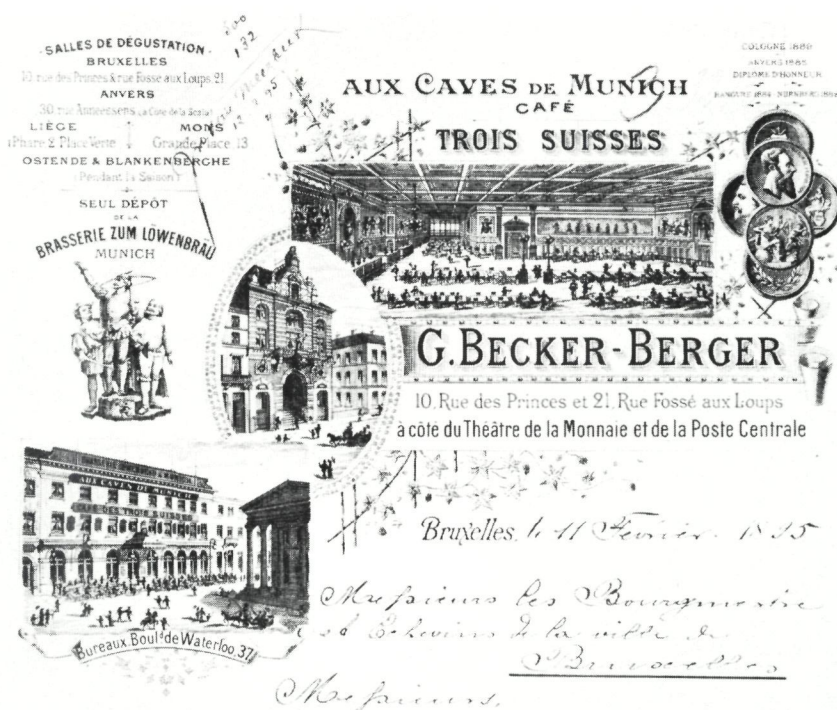 SALLES DE DÉGUSTATION
BRUXELLES
10, rue des Princes & rue Fossé aux Loups. 21
ANVERS
30 rue Anneessens (a Côté de la Scala)
LIÈGE MONS
Phare 2 Place Verte Grande Place 13
OSTENDE & BLANKENBERGHE
(Pendant la Saison)
SEUL DÉPÔT
DE LA
BRASSERIE ZUM LÖWENBRÄU
MUNICH
500
132
AUX CAVES DE MUNICH
CAFÉ
TROIS SUISSES
COLOGNE 1889
ANVERS 1885
DIPLOME D'HONNEUR
G. BECKER-BERGER
10, Rue des Princes et 21, Rue Fossé aux Loups
à côté du Théâtre de la Monnaie et de la Poste Centrale
AUX CAVES DE MUNICH
CAFÉ DES TROIS SUISSES
Bureaux. Boul.d de Waterloo. 37
Bruxelles, le 11 Février 1895
Messieurs les Bourgmestre
et Echevins de la ville de
Bruxelles
Messieurs,